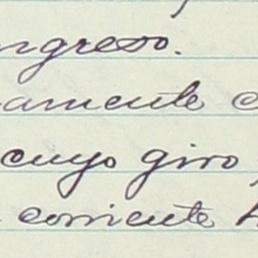 ngreso.
amente c
cuyo giro
corriente